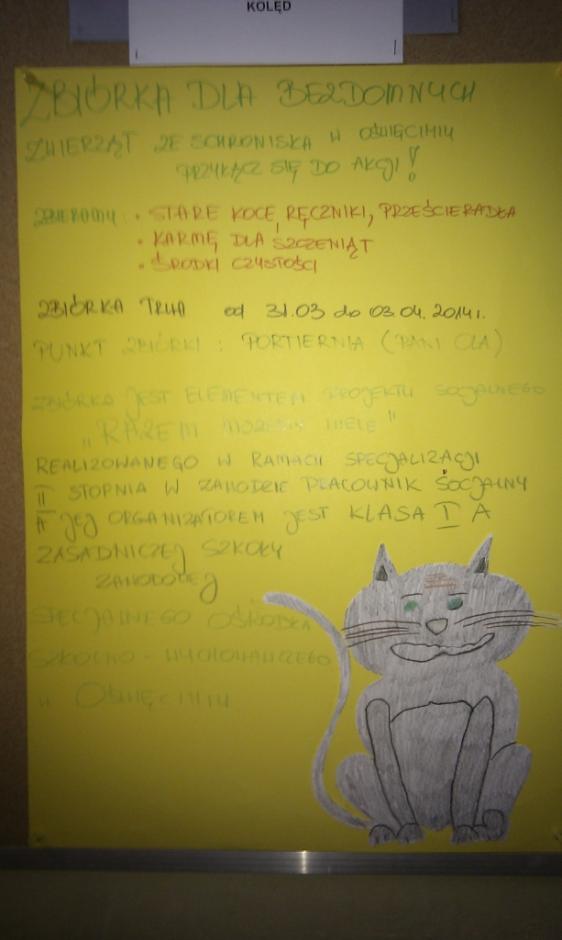 KOLĘD
ZBIÓRKA DLA BEZDOMNYCH
ZWIERZĄT ZE SCHRONISKA W OŚWIĘCIMIU
PRZYŁĄCZ SIĘ DO AKCJI!
ZBIERAMY: • STARE KOCE, RĘCZNIKI, PRZEŚCIERADŁA
• KARMĘ DLA SZCZENIĄT
• ŚRODKI CZYSTOŚCI
ZBIÓRKA TRWA od 31.03 do 03.04.2014r.
PUNKT ZBIÓRKI: PORTIERNIA (PANI OLA)
ZBIÓRKA JEST ELEMENTEM PROJEKTU SOCJALNEGO
„RAZEM MOŻEMY WIELE"
REALIZOWANEGO W RAMACH SPECJALIZACJI
II STOPNIA W ZAWODZIE PRACOWNIK SOCJALNY
A JEJ ORGANIZATOREM JEST KLASA I A
ZASADNICZEJ SZKOŁY
ZAWODOWEJ
SPECJALNEGO OŚRODKA
SZKOLNO-WYCHOWAWCZEGO
W OŚWIĘCIMIU